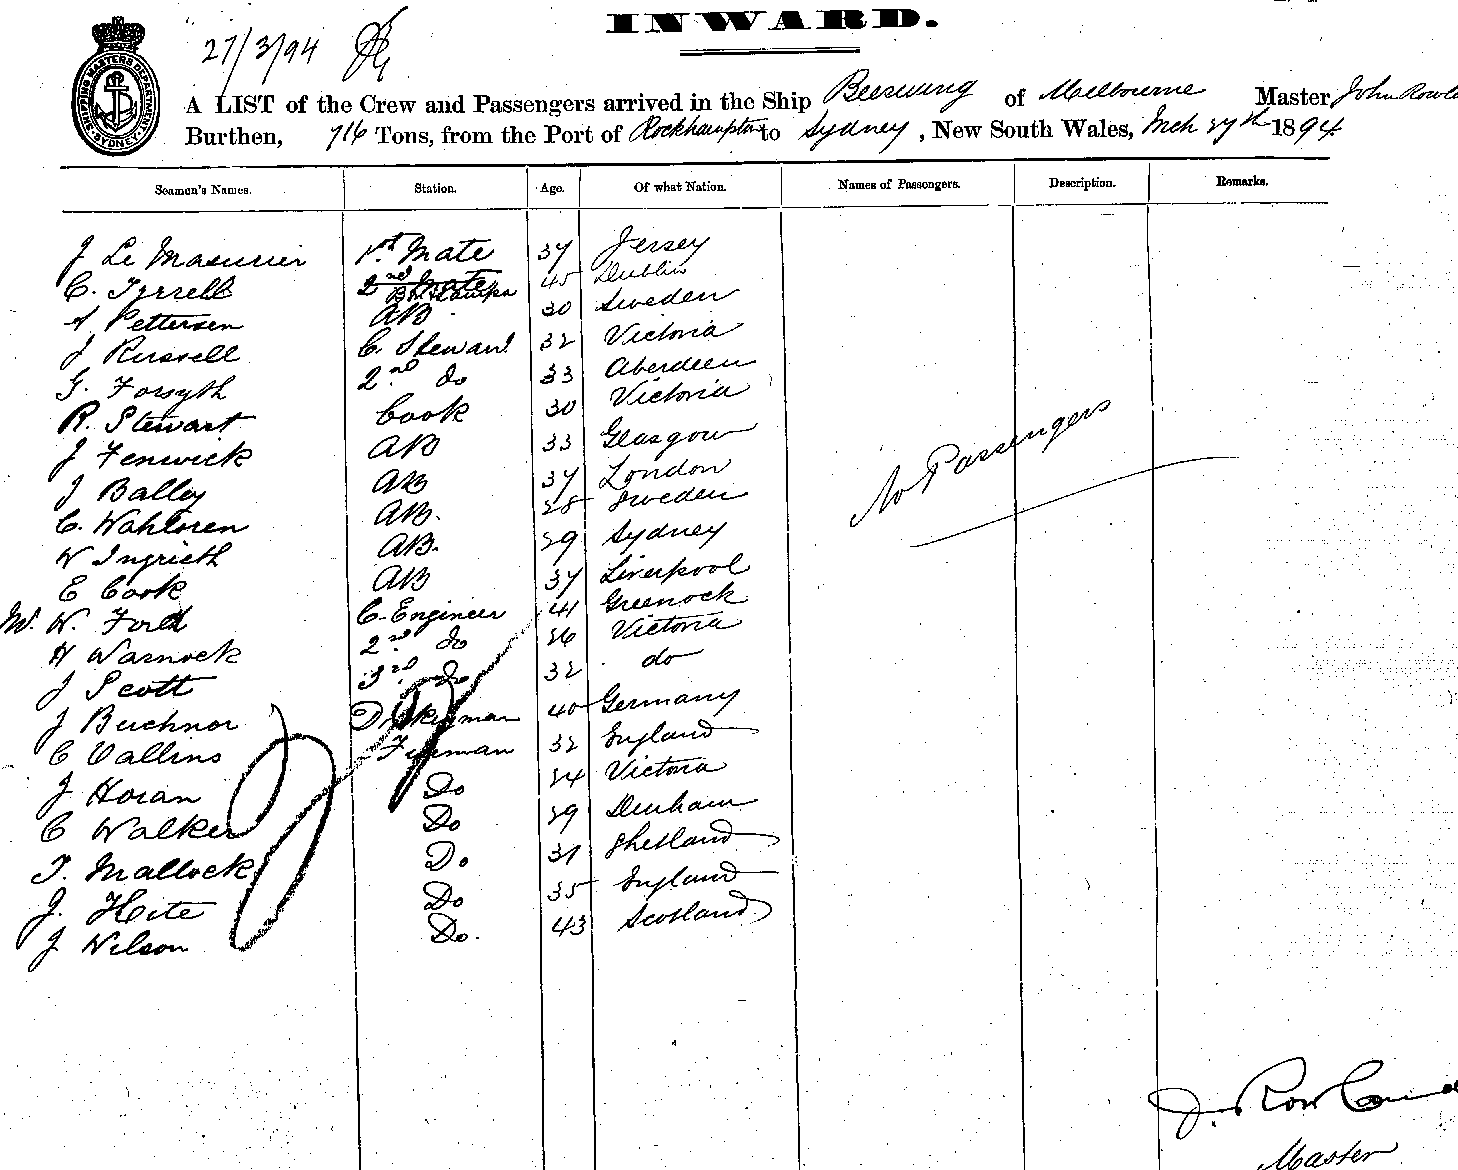 INWARD.
27/3/94
SHIPPING MASTERS DEPARTMENT SYDNEY
A LIST of the Crew and Passengers arrived in the Ship Beeswing of Melbourne Master John
Burthen, 716 Tons, from the Port of Rockhampton to Sydney, New South Wales, Mch 27th 1894
Seamen's Names. Station. Age. Of what Nation. Names of Passengers. Description. Remarks.
J Le Masurier 1st Mate 37 Jersey
C. Tyrrell 2nd Mate 45 Dublin
A Pettersen AB 30 Sweden
J Russell C. Steward 32 Victoria
G. Forsyth 2nd do 33 Aberdeen
R. Stewart Cook 30 Victoria
J Fenwick AB 33 Glasgow
J Balley AB 37 London
C. Wahloren AB. 28 Sweden
W Ingrieth AB. 29 Sydney
E Cook AB 37 Liverpool
M. W. Ford C. Engineer 41 Greenock
H Warnock 2nd do 26 Victoria
J Scott 3rd do 32 do
J Buchnor 40 Germany
C Vallins Fireman 32 England
J Horan Do 24 Victoria
C Walker Do 29 Durham
T. Mallock Do 31 Shetland
J. Hite Do 35 England
J Wilson Do. 43 Scotland
No Passengers
J. Rowland
Master